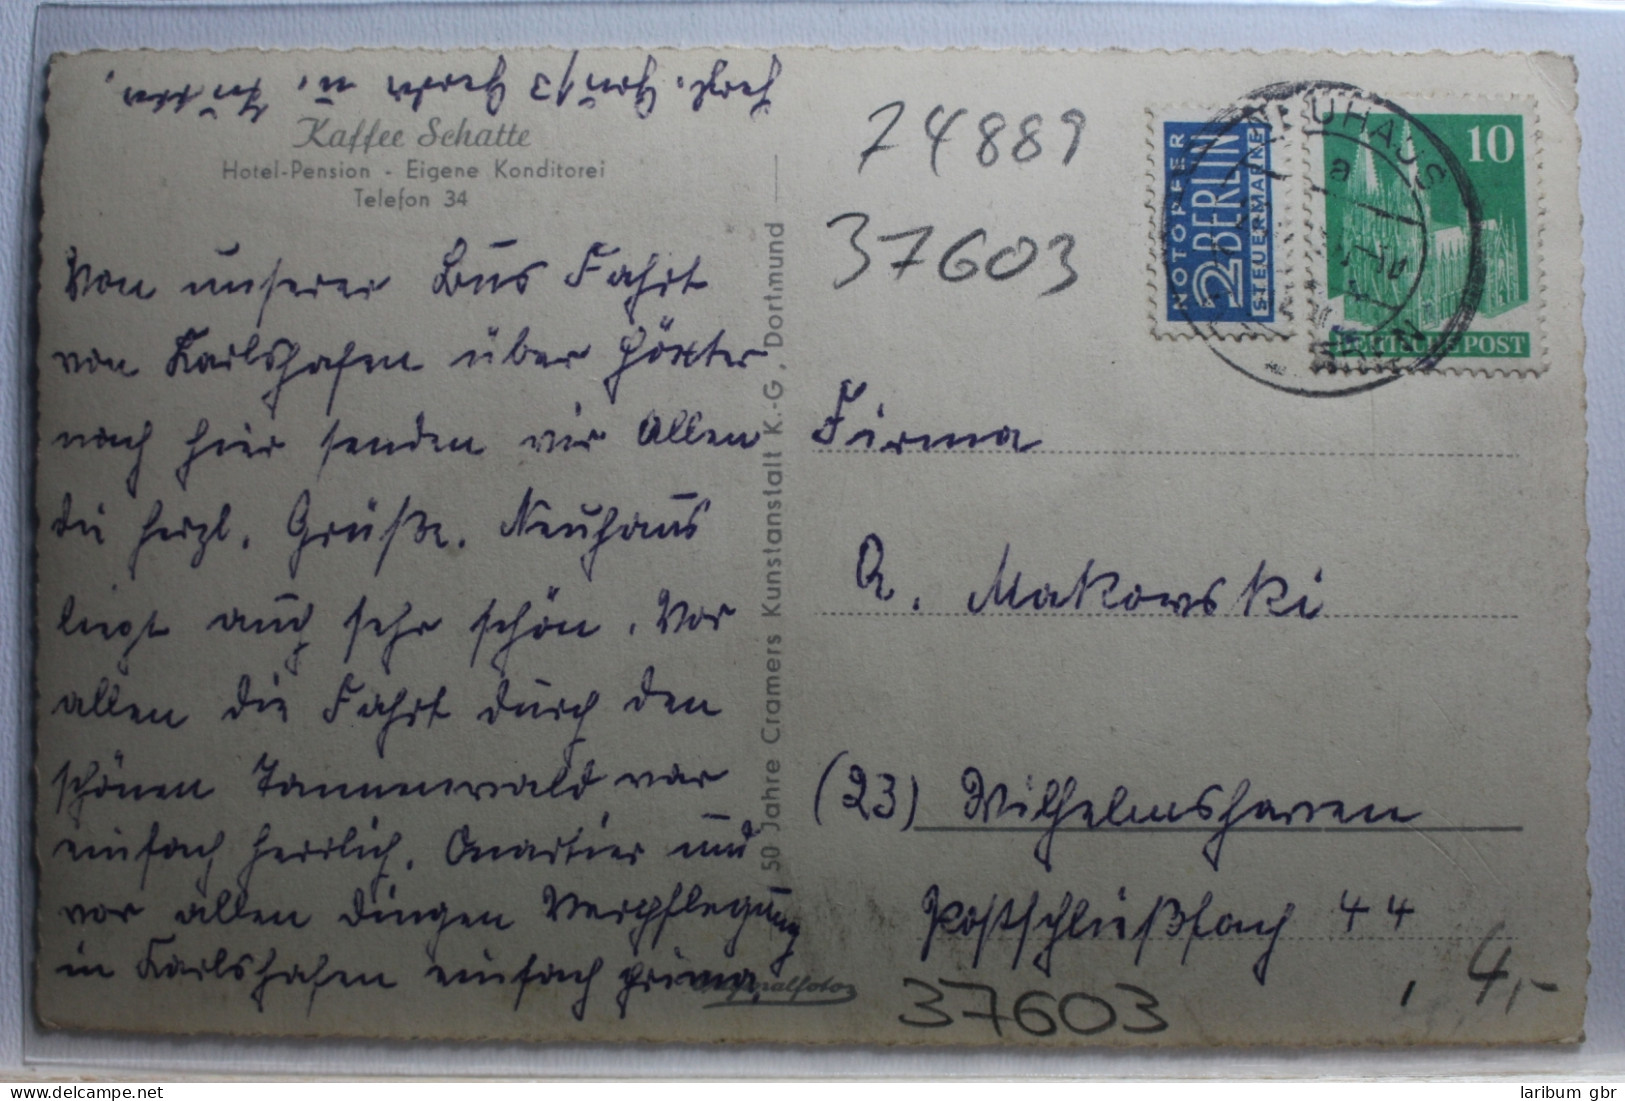 Kaffee Schatte
Hotel-Pension - Eigene Konditorei
Telefon 34
Von unserer Bus Fahrt
von Karlshafen über Höxter
nach hier senden wir Allen
die herzl. Grüße. Neuhaus
liegt auch sehr schön. Vor
allen die Fahrt durch den
schönen Tannenwald war
einfach herrlich. Quartier und
vor allen dingen Verpflegung
in Karlshafen einfach prima.
Herzl. Grüße
50 Jahre Cramers Kunstanstalt K.-G., Dortmund
Originalfoto
74889
37603
NOTOPFER
2 BERLIN
STEUERMARKE
NEUHAUS
a
10
DEUTSCHE POST
Firma
A. Makowski
(23) Wilhelmshaven
Postschließfach 44
37603
4,-
laribum gbr